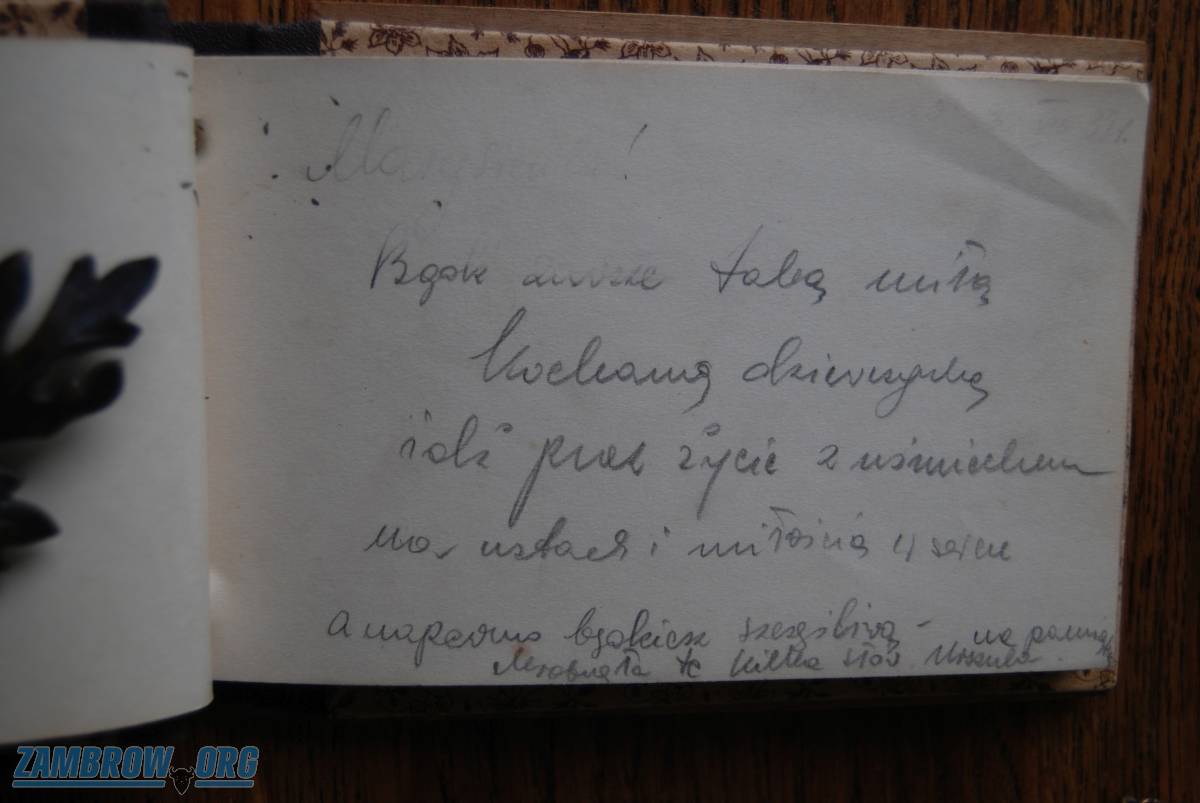 Bądź zawsze taką miłą
Kochaną dziewczynką
idź przez życie z uśmiechem
na ustach i miłością w sercu
a napewno będziesz szczęśliwą - na pamią
te kilka słów Urszula
ZAMBROW.ORG